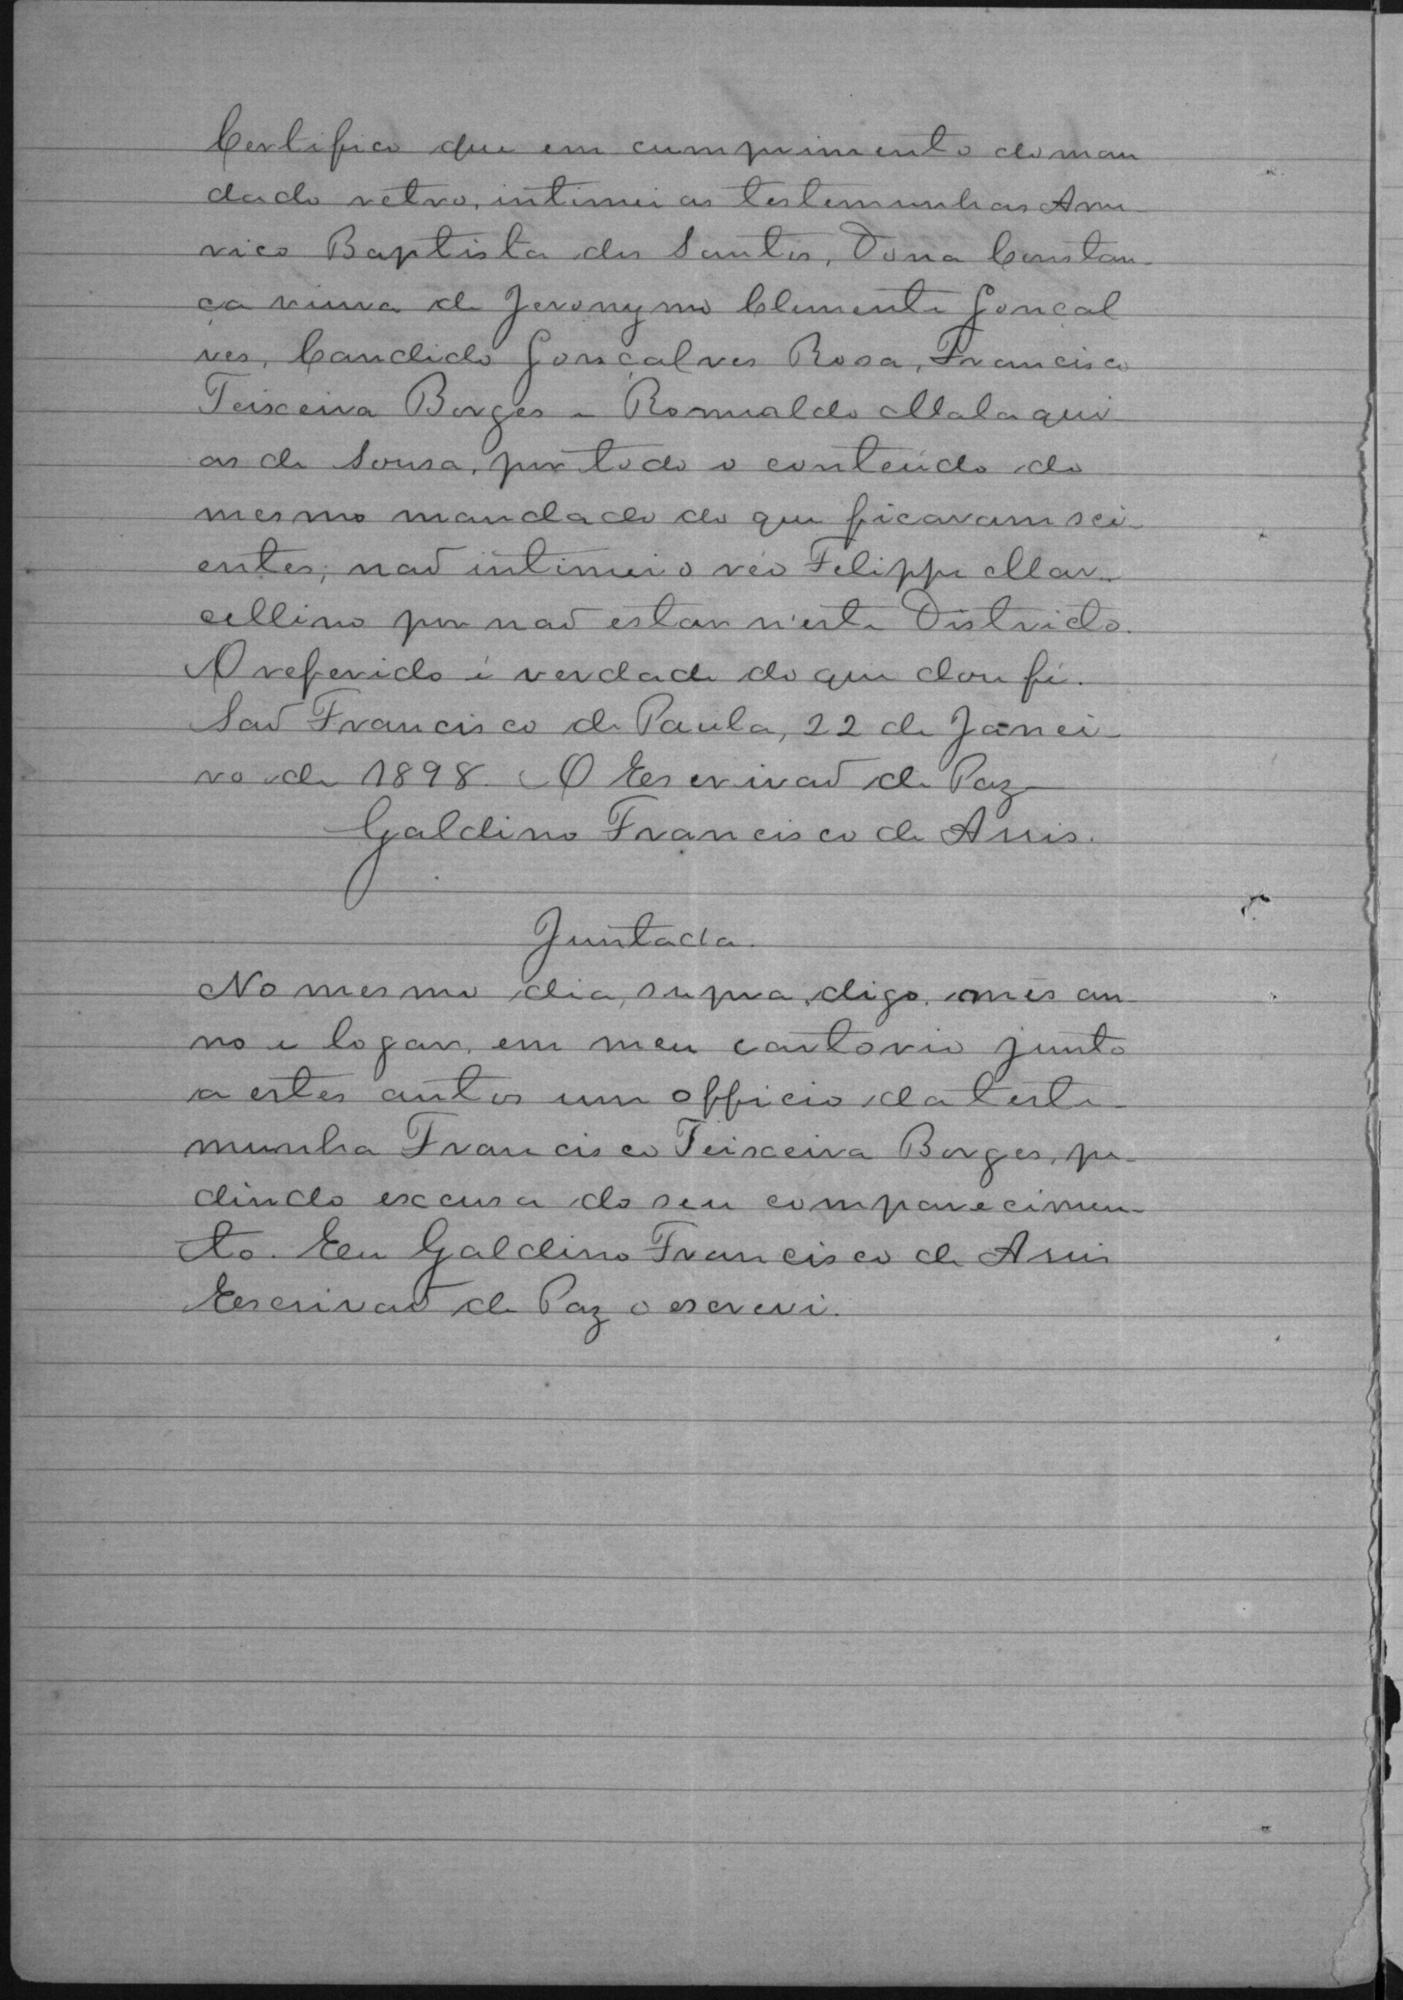 Certifico que em cumprimento do man
dado retro, intimei as testemunhas Ame-
rico Baptista dos Santos, Dona Constan-
ça viuva de Jeronymo Clemente Gonçal
ves, Candido Gonçalves Rosa, Francisco
Teixeira Borges e Romualdo Malaqui
as de Sousa, por todo o conteúdo do
mesmo mandado do que ficavam sci-
entes; naõ intimei o réo Felippe Mar-
cellino por naõ estar n'este Districto.
O referido é verdade do que dou fé.
Saõ Francisco de Paula, 22 de Janei-
ro de 1898. O Escrivaõ de Paz
Galdino Francisco de Assis.
Juntada.
No mesmo dia, supra, digo, mes an-
no e logar, em meu cartorio junto
a estes autos um officio da teste-
munha Francisco Teixeira Borges, pe-
dindo excusa do seu comparecimen-
to. Eu Galdino Francisco de Assis
Escrivaõ de Paz o escrevi.